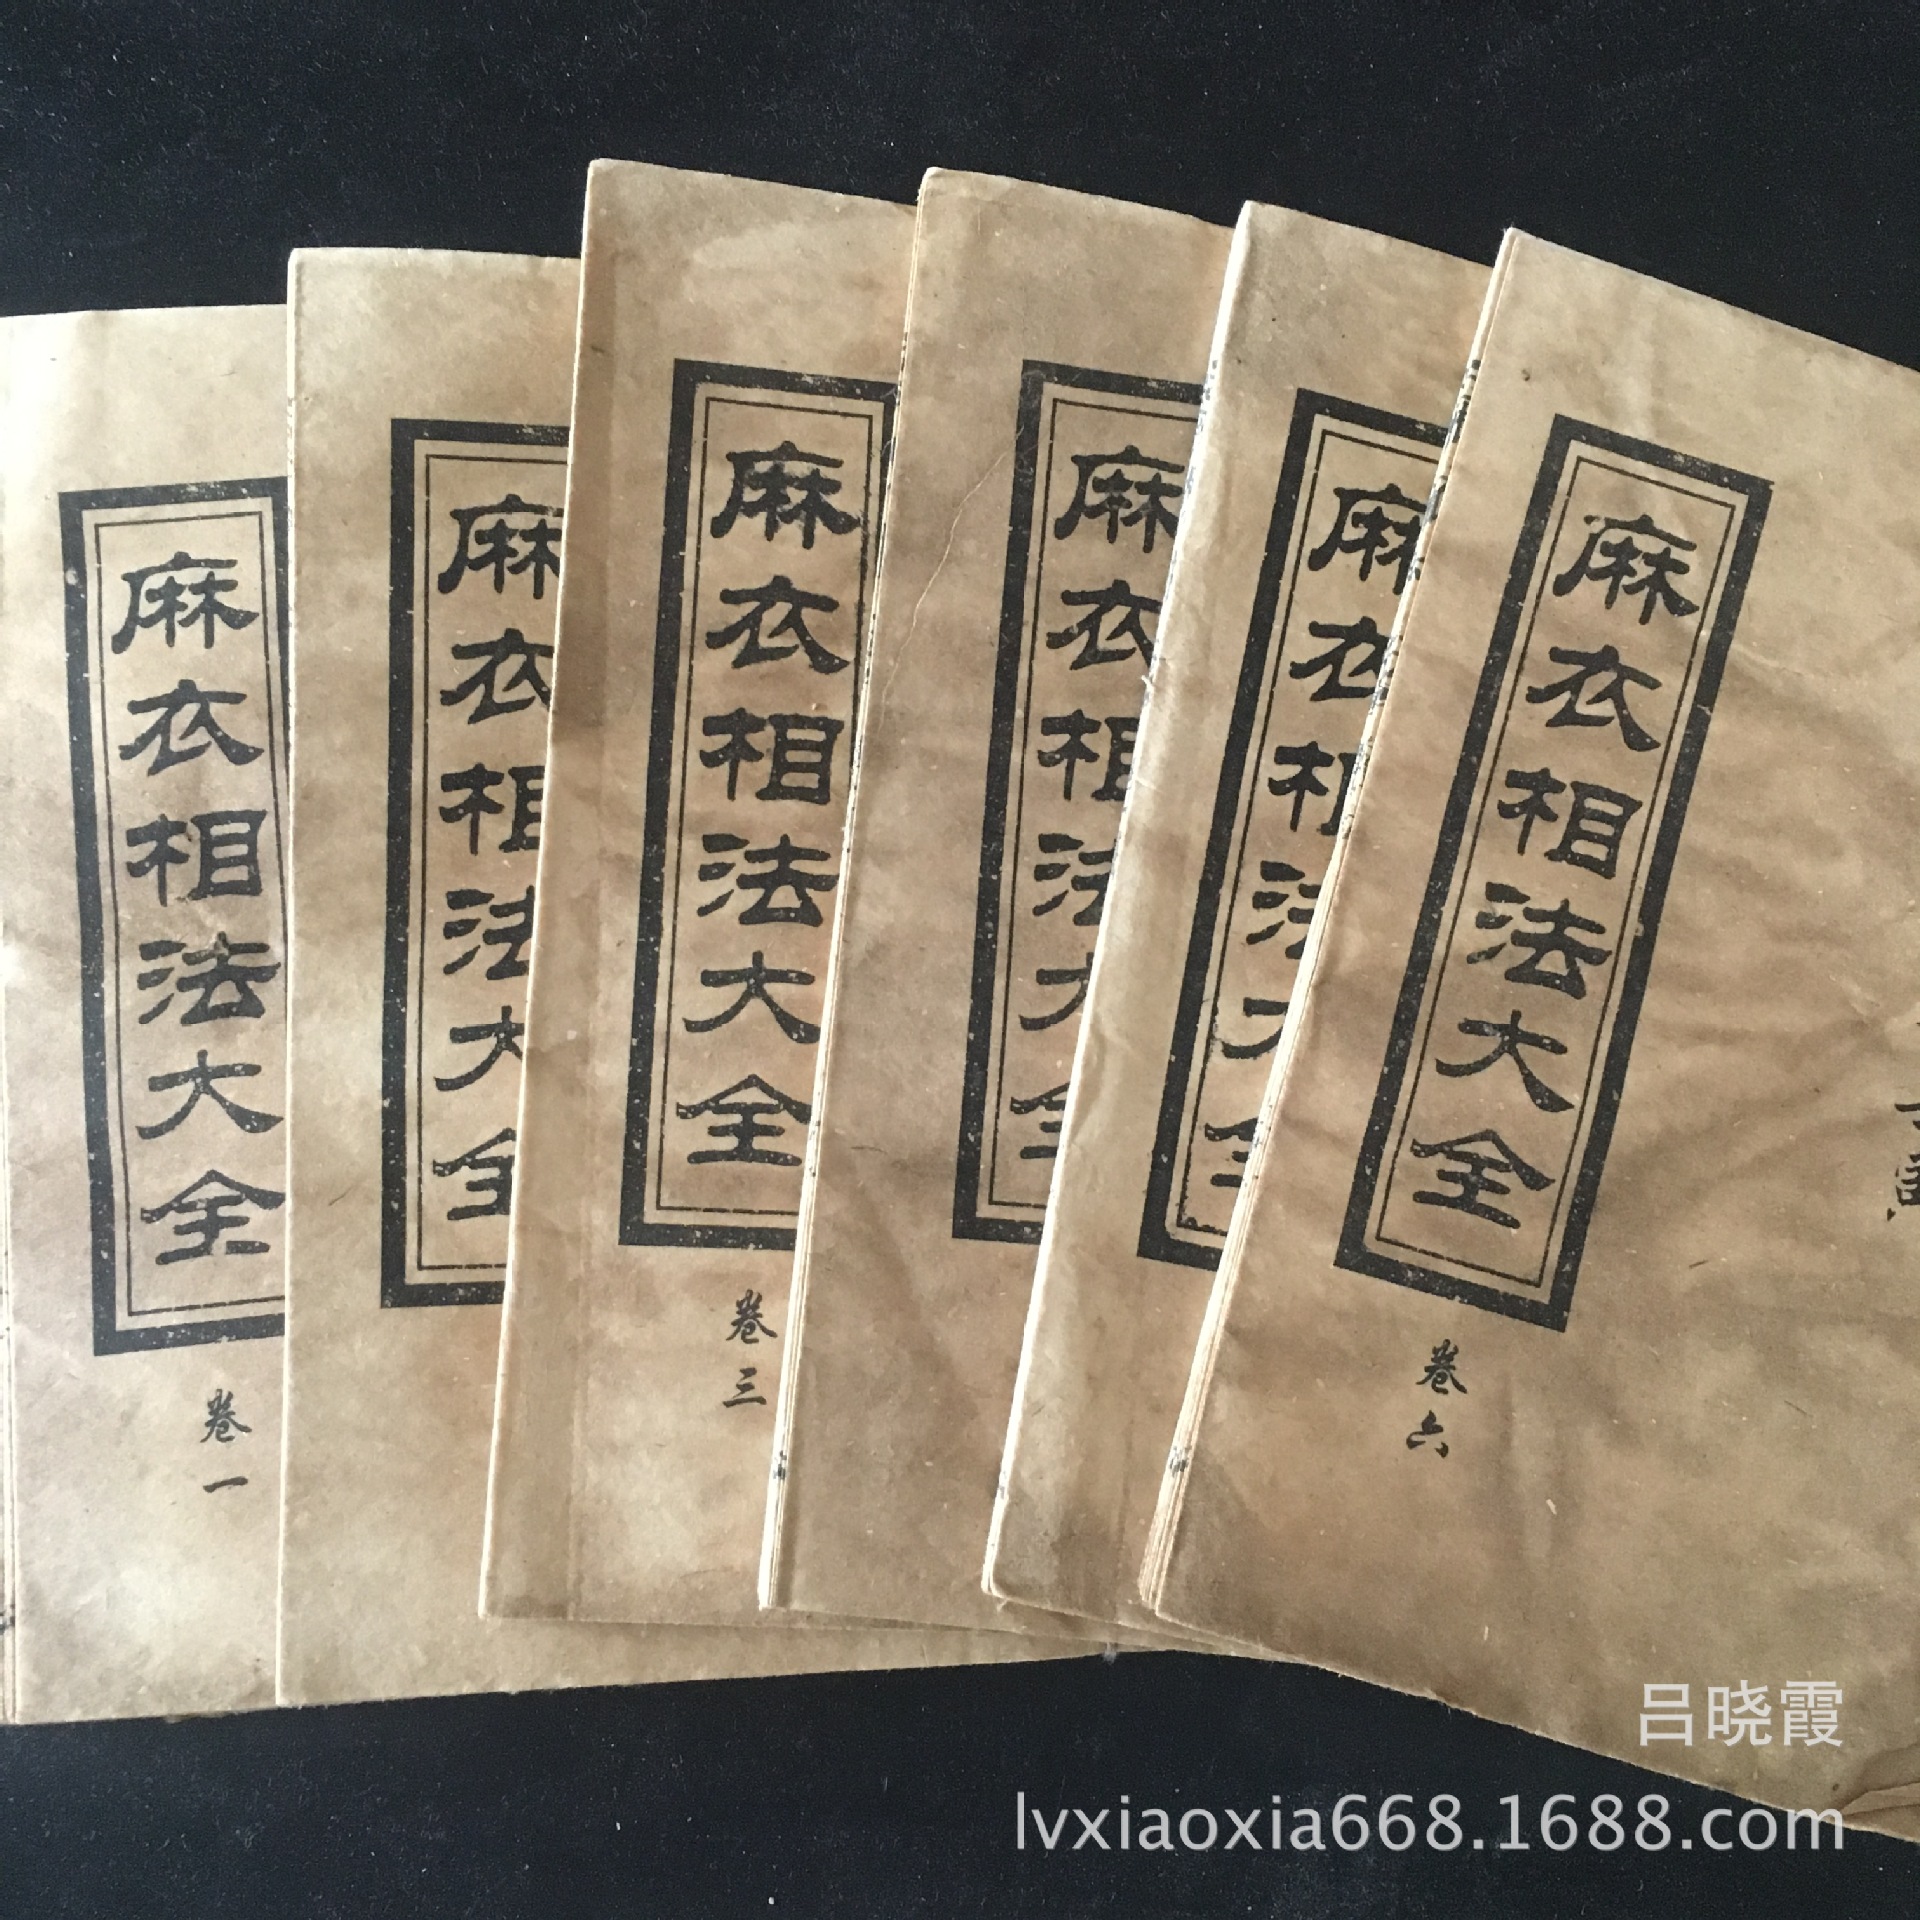 麻衣相法大全
卷一
麻衣相法大全
麻衣相法大全
卷三
麻衣相法大全
麻衣相法大全
麻衣相法大全
卷六
吕晓霞
lvxiaoxia668.1688.com